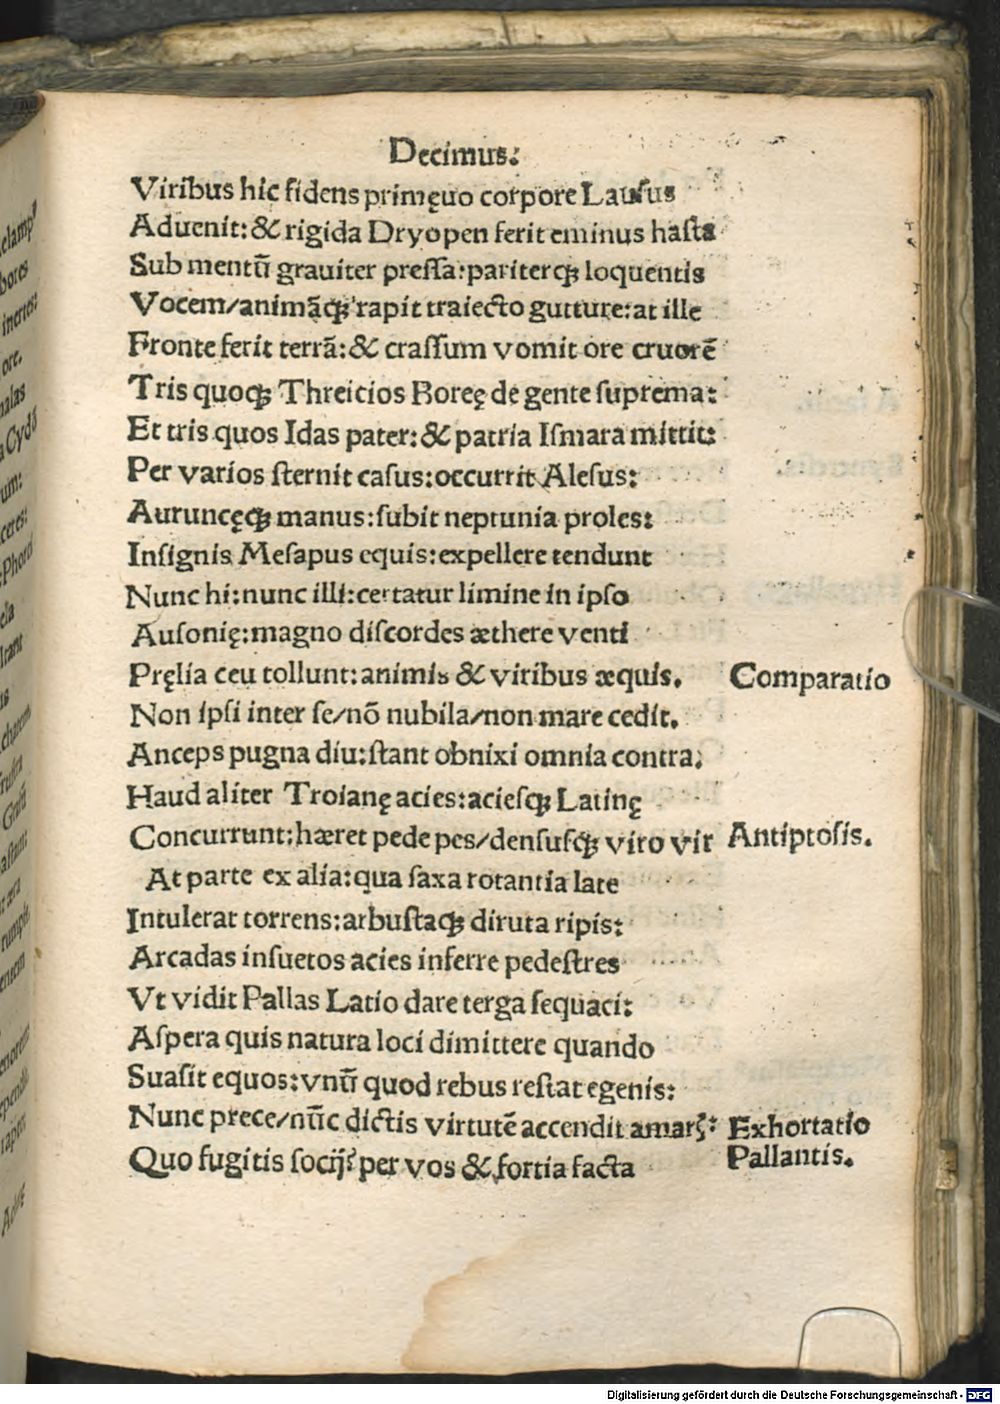 Decimus.
Viribus hic fidens primęuo corpore Lausus
Aduenit: & rigida Dryopen ferit eminus hasta
Sub mentū grauiter pressa: pariterqꝫ loquentis
Vocem/animāqꝫ rapit traiecto gutture: at ille
Fronte ferit terrā: & crassum vomit ore cruorē
Tris quoqꝫ Threicios Boreę de gente suprema:
Et tris quos Idas pater: & patria Ismara mittit:
Per varios sternit casus: occurrit Alesus:
Auruncęqꝫ manus: subit neptunia proles:
Insignis Mesapus equis: expellere tendunt
Nunc hi: nunc illi: certatur limine in ipso
Ausonię: magno discordes æthere venti
Pręlia ceu tollunt: animis & viribus æquis. Comparatio
Non ipsi inter se/nō nubila/non mare cedit.
Anceps pugna diu: stant obnixi omnia contra.
Haud aliter Troianę acies: aciesqꝫ Latinę
Concurrunt: hæret pede pes/densusqꝫ viro vir Antiptosis.
At parte ex alia: qua saxa rotantia late
Intulerat torrens: arbustaqꝫ diruta ripis:
Arcadas insuetos acies inferre pedestres
Vt vidit Pallas Latio dare terga sequaci:
Aspera quis natura loci dimittere quando
Suasit equos: vnū quod rebus restat egenis:
Nunc prece/nūc dictis virtutē accendit amarꝭ: Exhortatio
Quo fugitis socij? per vos & fortia facta Pallantis.
Digitalisierung gefördert durch die Deutsche Forschungsgemeinschaft - DFG